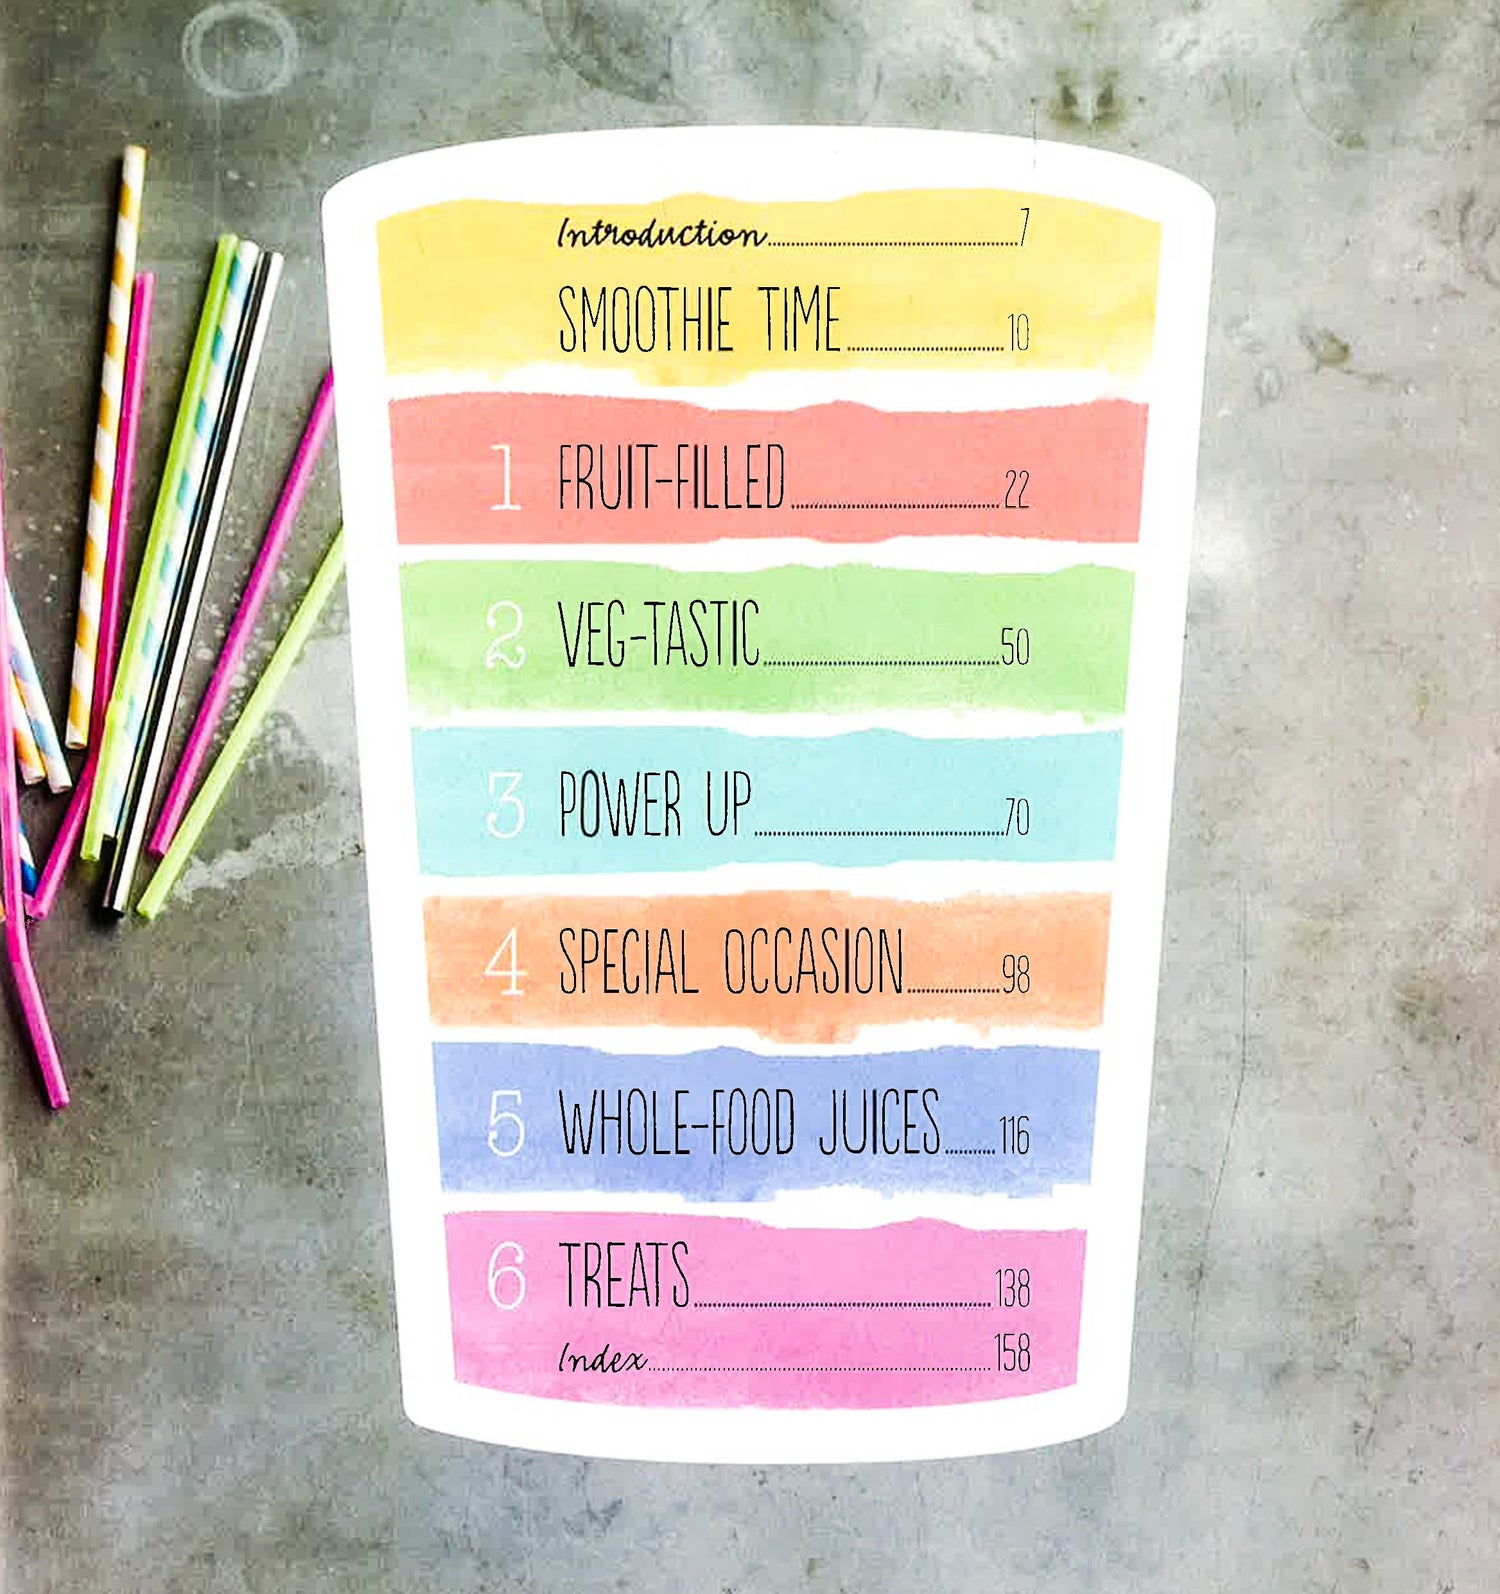 Introduction 7
SMOOTHIE TIME 10
1 FRUIT-FILLED 22
2 VEG-TASTIC 50
3 POWER UP 70
4 SPECIAL OCCASION 98
5 WHOLE-FOOD JUICES 116
6 TREATS 138
Index 158